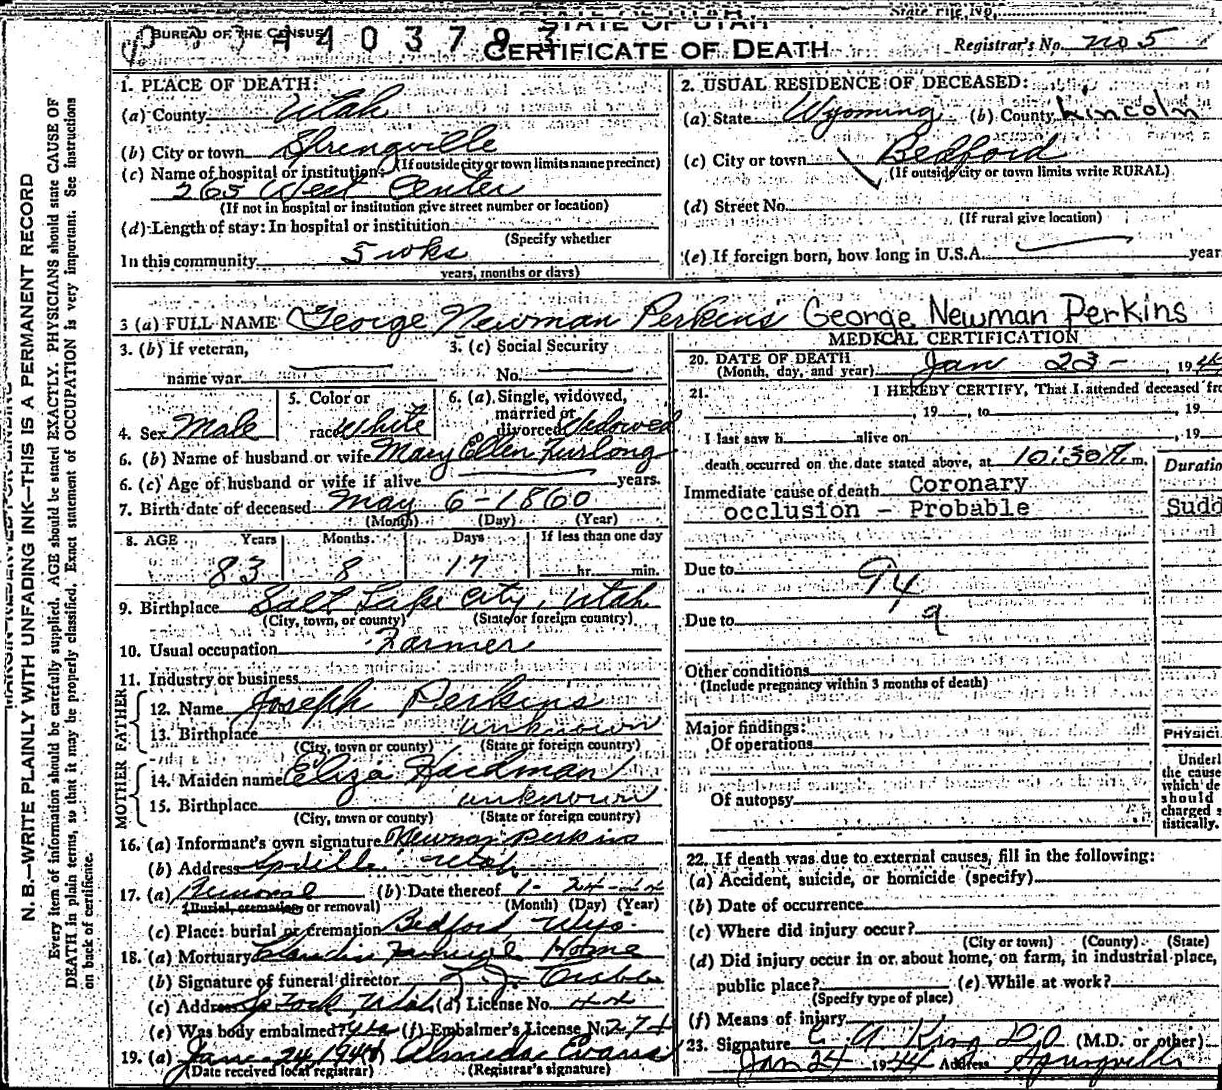 State File No.
STATE OF UTAH
BUREAU OF THE CENSUS
4 4 0 3 7 9
CERTIFICATE OF DEATH
Registrar's No. no 5
N. B.—WRITE PLAINLY WITH UNFADING INK—THIS IS A PERMANENT RECORD
Every item of information should be carefully supplied. AGE should be stated EXACTLY. PHYSICIANS should state CAUSE OF
DEATH in plain terms, so that it may be properly classified. Exact statement of OCCUPATION is very important. See instructions
on back of certificate.
1. PLACE OF DEATH:
(a) County Utah
(b) City or town Springville
(If outside city or town limits name precinct)
(c) Name of hospital or institution:
265 West Center
(If not in hospital or institution give street number or location)
(d) Length of stay: In hospital or institution
(Specify whether
In this community 5 wks
years, months or days)
2. USUAL RESIDENCE OF DECEASED:
(a) State Wyoming (b) County Lincoln
(c) City or town Bedford
(If outside city or town limits write RURAL)
(d) Street No.
(If rural give location)
(e) If foreign born, how long in U.S.A. year
3 (a) FULL NAME George Newman Perkins George Newman Perkins
3. (b) If veteran,
name war
3. (c) Social Security
No.
4. Sex Male
5. Color or
race White
6. (a) Single, widowed,
married or
divorced Widowed
6. (b) Name of husband or wife Mary Ellen Furlong
6. (c) Age of husband or wife if alive years.
7. Birth date of deceased May 6 - 1860
(Month) (Day) (Year)
8. AGE Years Months Days If less than one day
83 8 17 hr. min.
9. Birthplace Salt Lake City, Utah
(City, town, or county) (State or foreign country)
10. Usual occupation Farmer
11. Industry or business
FATHER
12. Name Joseph Perkins
13. Birthplace unknown
(City, town or county) (State or foreign country)
MOTHER
14. Maiden name Eliza Hardman
15. Birthplace unknown
(City, town or county) (State or foreign country)
16. (a) Informant's own signature Newman Perkins
(b) Address Spville Utah
17. (a) Removal (b) Date thereof 1 - 24 - 44
(Burial, cremation or removal) (Month) (Day) (Year)
(c) Place: burial or cremation Bedford Wyo.
18. (a) Mortuary Claudin Funeral Home
(b) Signature of funeral director
(c) Address Sp Fork, Utah (d) License No. 44
(e) Was body embalmed? yes (f) Embalmer's License No. 274
19. (a) Jan - 24 1944 Almeda Evans
(Date received local registrar) (Registrar's signature)
MEDICAL CERTIFICATION
20. DATE OF DEATH
(Month, day, and year) Jan 23 - , 1944
21. I HEREBY CERTIFY, That I attended deceased fro
, 19 , to , 19
I last saw h alive on , 19
death occurred on the date stated above, at 10:30 P m.
Duratio
Immediate cause of death Coronary
occlusion - Probable Sudd
Due to 94
Due to a
Other conditions
(Include pregnancy within 3 months of death)
Major findings:
Of operations
Of autopsy
PHYSICI
Underl
the cause
which de
should
charged s
tistically.
22. If death was due to external causes, fill in the following:
(a) Accident, suicide, or homicide (specify)
(b) Date of occurrence
(c) Where did injury occur?
(City or town) (County) (State)
(d) Did injury occur in or about home, on farm, in industrial place,
public place? (e) While at work?
(Specify type of place)
(f) Means of injury
23. Signature C. A. King D.O (M.D. or other)
Jan 24 1944 Address Springville